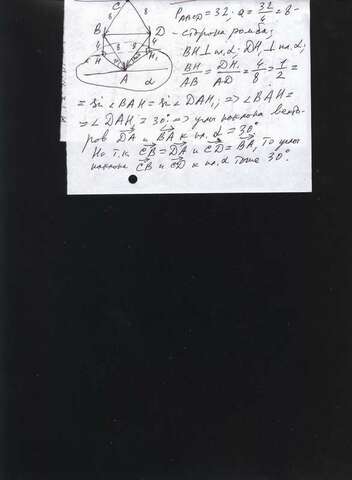 C
8 8
B D
4 8 8 4
H H₁
A α
P_ABCD = 32; a = 32/4 = 8 -
- сторона ромба;
BH ⊥ пл. α. DH₁ ⊥ пл. α;
BH/AB = DH₁/AD = 4/8 = 1/2 =
= si ∠BAH = si ∠DAH₁; => ∠BAH =
= ∠DAH₁ = 30° => углы наклона векто-
ров DA и BA к пл. α = 30°
Но т.к. CB = DA и CD = BA, то углы
наклона CB и CD к пл. α тоже 30°.